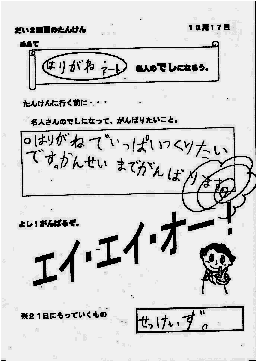 だい2回目のたんけん 10月17日
めあて
はりがねアート 名人のでしになろう。
たんけんに行く前に・・・
名人さんのでしになって、がんばりたいこと。
○はりがねでいっぱいつくりたい
です。がんせいまでがんばります。
よし！がんばるぞ。
エイ・エイ・オー！
※21日にもっていくもの
せっけいず。